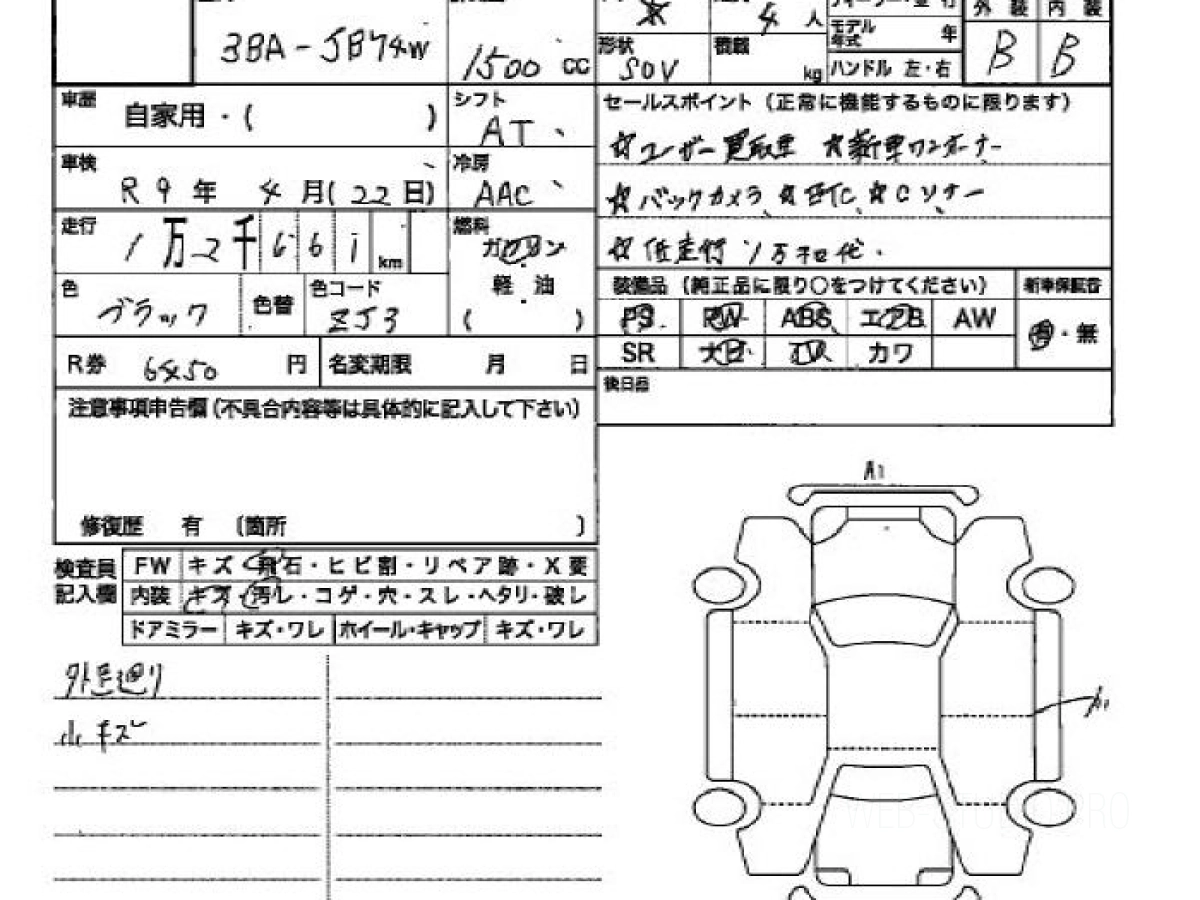 4 人
年
外装 内装
3BA-JB74W
1500 cc
形状
SUV
積載
kg
モデル年式 年
ハンドル 左・右
B B
車歴
自家用・( )
シフト
AT
セールスポイント (正常に機能するものに限ります)
☆ユーザー買取車 ☆新車ワンオーナー
車検
R9年 4月(22日)
冷房
AAC
☆バックカメラ、☆ETC、☆Cソナー
走行
1万2千661 km
燃料
ガソリン
軽油
( )
☆低走行
色
ブラック
色替
色コード
ZJ3
装備品 (純正品に限り○をつけてください)
新車保証書
PS PW ABS エアB AW
有・無
SR ナビ TV カワ
R券 6450 円
名変期限 月 日
後日品
注意事項申告欄(不具合内容等は具体的に記入して下さい)
修復歴 有 〔箇所 〕
検査員記入欄
FW キズ・飛石・ヒビ割・リペア跡・X要
内装 キズ・汚レ・コゲ・穴・スレ・ヘタリ・破レ
ドアミラー キズ・ワレ ホイール・キャップ キズ・ワレ
小キズ
A1
A1